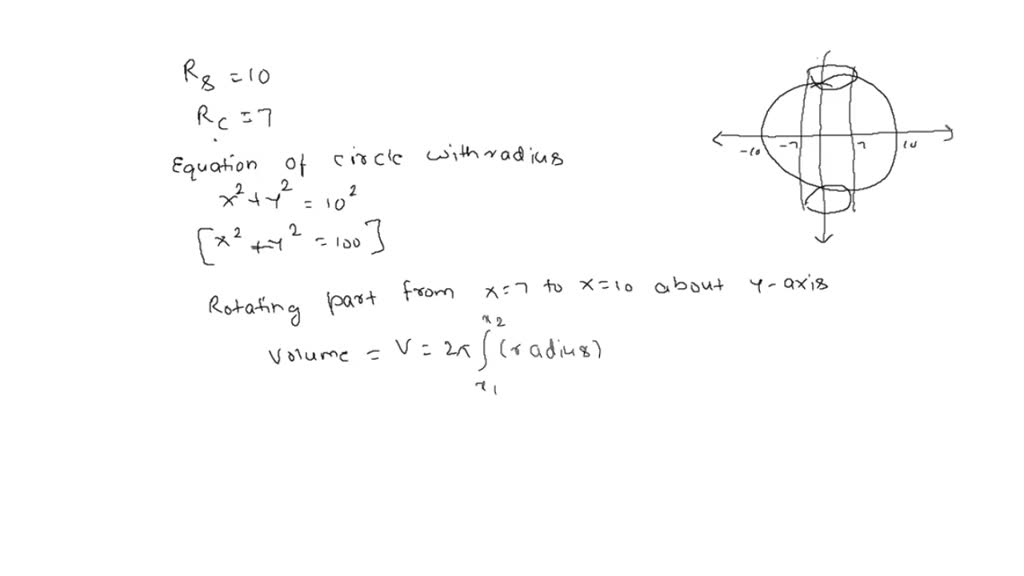 R8 = 10
Rc = 7
Equation of circle with radius
x² + y² = 10²
[x² + y² = 100]
-10 -7 7 10
Rotating part from x=7 to x=10 about y-axis
Volume = V = 2π ∫ₓ₁ˣ² (radius)